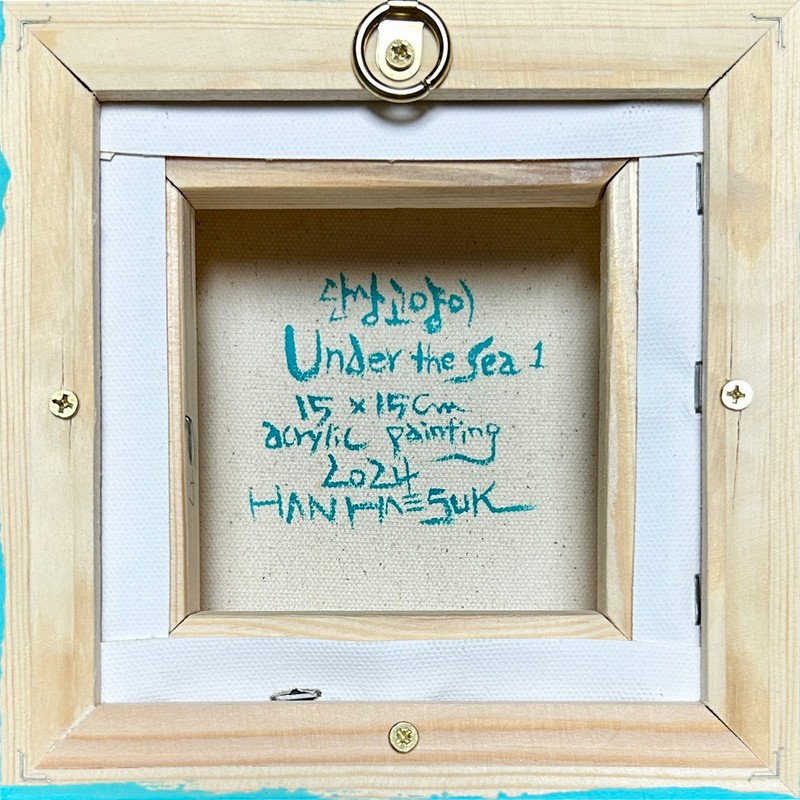 단상고양이
Under the Sea 1
15 x 15 cm
acrylic painting
2024
HAN HAESUK